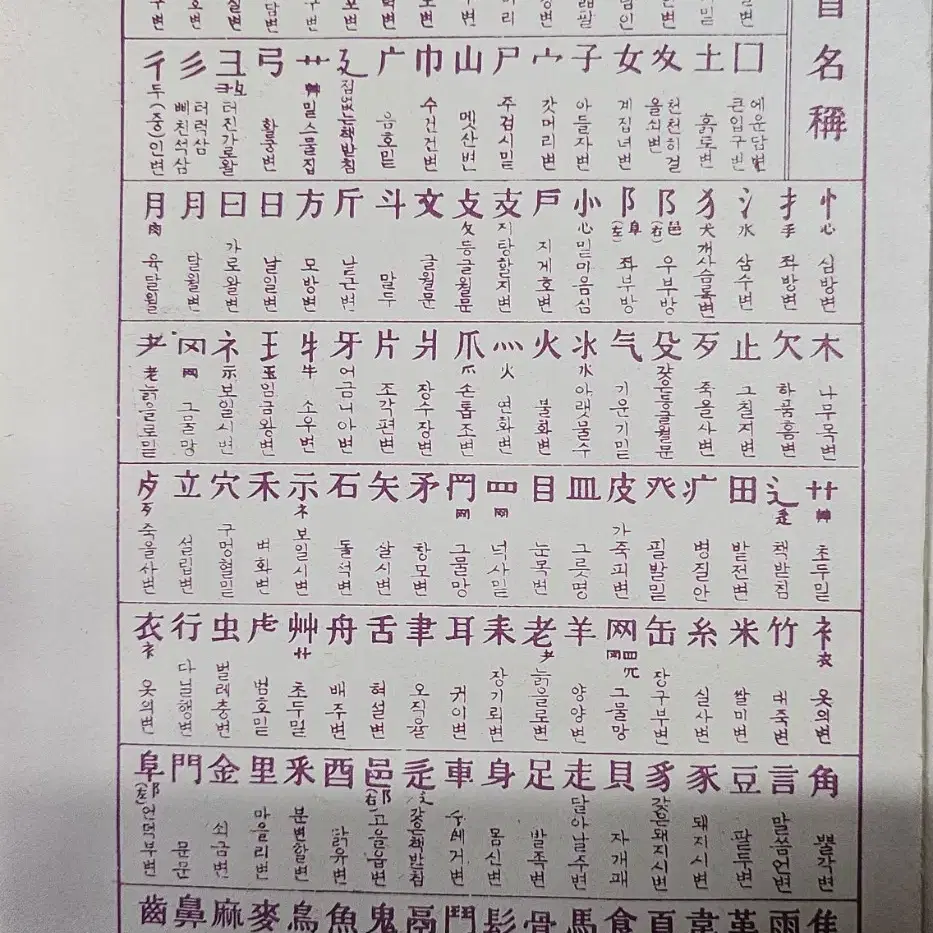 名稱
囗 에운담변 큰입구변
土 흙토변
夊 천천히걸 올쇠변
女 계집녀변
子 아들자변
宀 갓머리변
尸 주검시밑
山 멧산변
巾 수건건변
广 음호밑
廴 짐없는책받침
艹 艸 밀스물집
弓 활궁변
彐 彑 터진가로왈
彡 터럭삼 삐친석삼
彳 두(중)인변
忄 心 심방변
扌 手 좌방변
氵 水 삼수변
犭 犬 개사슴록변
阝 邑 (右) 우부방
阝 阜 (左) 좌부방
㣺 心 밑마음심
戶 지게호변
支 지탱할지변
攴 攵 등글월문
文 글월문
斗 말두
斤 날근변
方 모방변
日 날일변
曰 가로왈변
月 달월변
月 肉 육달월
木 나무목변
欠 하품흠변
止 그칠지변
歹 죽을사변
殳 갖은등글월문
气 기운기밑
氺 水 아랫물수
火 불화변
灬 火 연화변
爪 爫 손톱조변
爿 장수장변
片 조각편변
牙 어금니아변
牛 牜 소우변
王 玉 임금왕변
礻 示 보일시변
罓 网 그물망
耂 老 늙을로밑
艹 艸 초두밑
辶 辵 책받침
田 밭전변
疒 병질안
癶 필발밑
皮 가죽피변
皿 그릇명
目 눈목변
罒 网 넉사밑
网 그물망
矛 창모변
矢 살시변
石 돌석변
示 礻 보일시변
禾 벼화변
穴 구멍혈밑
立 설립변
歺 歹 죽을사변
衤 衣 옷의변
竹 대죽변
米 쌀미변
糸 실사변
缶 장구부변
网 罒 그물망
羊 양양변
老 耂 늙을로변
耒 장기뢰변
耳 귀이변
聿 오직율
舌 혀설변
舟 배주변
艸 艹 초두밑
虍 범호밑
虫 벌레충변
行 다닐행변
衣 衤 옷의변
角 뿔각변
言 말씀언변
豆 팥두변
豕 돼지시변
豸 갖은돼지시변
貝 자개패
走 달아날주변
足 발족변
身 몸신변
車 수레거변
辵 辶 갖은책받침
邑 阝 (右) 고을읍변
酉 닭유변
釆 분변할변
里 마을리변
金 쇠금변
門 문문
阜 阝 (左) 언덕부변
隹 雨 革 韋 頁 食 馬 骨 髟 鬥 鬲 鬼 魚 鳥 麥 麻 鼻 齒